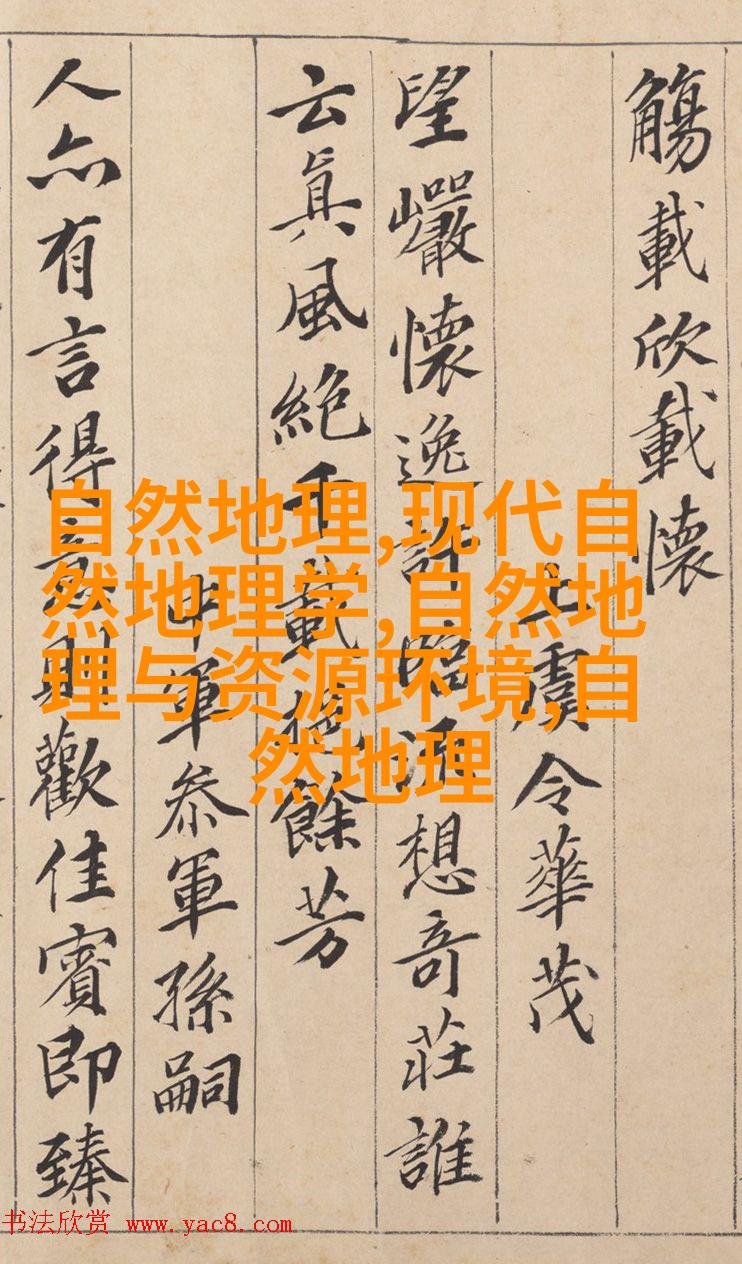 觴載欣載懷
上虞令華茂
望巗懷逸許臨流想奇莊誰
云眞風絶千載挹餘芳
中軍叅軍孫嗣
人亦有言得意則歡佳賓即臻
自然地理,现代自
然地理学,自然地
理与资源环境,自
然地理
书法欣赏 www.yac8.com